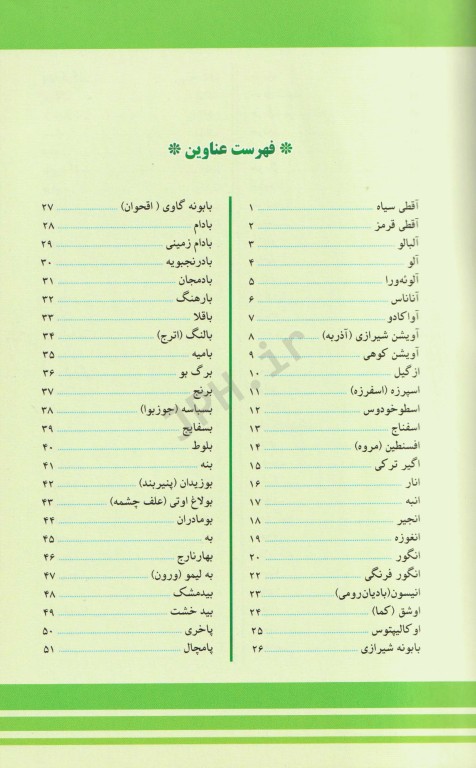 * فهرست عناوین *
آقطی سیاه ۱
آقطی قرمز ۲
آلبالو ۳
آلو ۴
آلوئه‌ورا ۵
آناناس ۶
آواکادو ۷
آویشن شیرازی (آذربه) ۸
آویشن کوهی ۹
ازگیل ۱۰
اسپرزه (اسفرزه) ۱۱
اسطوخودوس ۱۲
اسفناج ۱۳
افسنطین (مروه) ۱۴
اگیر ترکی ۱۵
انار ۱۶
انبه ۱۷
انجیر ۱۸
انغوزه ۱۹
انگور ۲۰
انگور فرنگی ۲۲
انیسون(بادیان‌رومی) ۲۳
اوشق (کما) ۲۴
اوکالیپتوس ۲۵
بابونه شیرازی ۲۶
بابونه گاوی ( اقحوان) ۲۷
بادام ۲۸
بادام زمینی ۲۹
بادرنجبویه ۳۰
بادمجان ۳۱
بارهنگ ۳۲
باقلا ۳۳
بالنگ (اترج) ۳۴
بامیه ۳۵
برگ بو ۳۶
برنج ۳۷
بسباسه (جوزبوا) ۳۸
بسفایج ۳۹
بلوط ۴۰
بنه ۴۱
بوزیدان (پنیربند) ۴۲
بولاغ اوتی (علف چشمه) ۴۳
بومادران ۴۴
به ۴۵
بهارنارج ۴۶
به لیمو (ورون) ۴۷
بیدمشک ۴۸
بید خشت ۴۹
پاخری ۵۰
پامچال ۵۱
JPH.ir